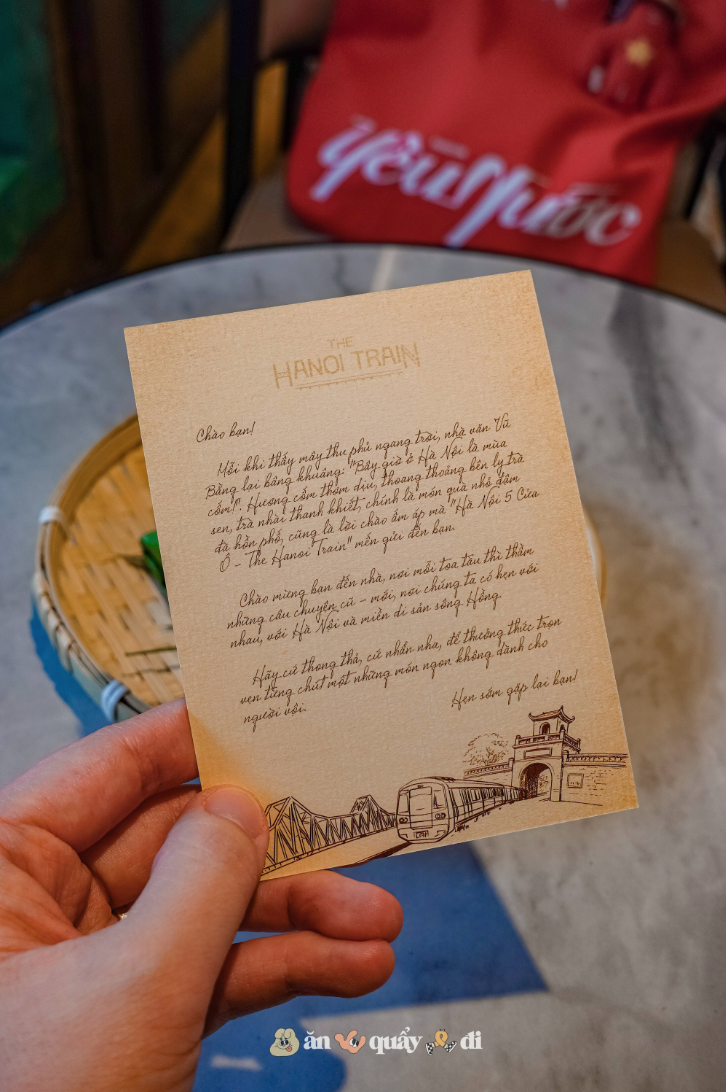 Yêu Nước
THE
HANOI TRAIN
Chào bạn!
Mỗi khi thấy mây thu phủ ngang trời, nhà văn Vũ
Bằng lại bâng khuâng: "Bây giờ ở Hà Nội là mùa
cốm!". Hương cốm thơm dịu, thoang thoảng bên ly trà
sen, trà nhài thanh khiết, chính là món quà nhỏ đậm
đà hồn phố, cũng là lời chào ấm áp mà "Hà Nội 5 Cửa
Ô - The Hanoi Train" mến gửi đến bạn.
Chào mừng bạn đến nhà, nơi mỗi toa tàu thì thầm
những câu chuyện cũ - mới, nơi chúng ta có hẹn với
nhau, với Hà Nội và miền di sản sông Hồng.
Hãy cứ thong thả, cứ nhẩn nha, để thưởng thức trọn
vẹn từng chút một những món ngon không dành cho
người vội.
Hẹn sớm gặp lại bạn!
ăn quẩy đi